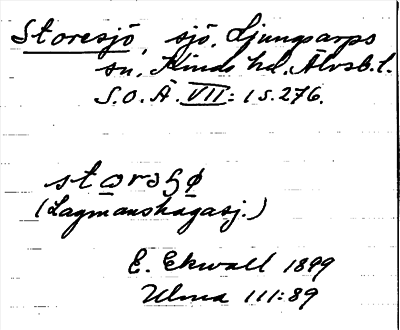 Storesjö, sjö, Ljungsarps
sn, Kinds hd. Älvsb. l.
S.O.Ä. VII: 1 s. 276.
(Lagmanshagasj.)
E. Ekwall 1899
Ulma 111:89